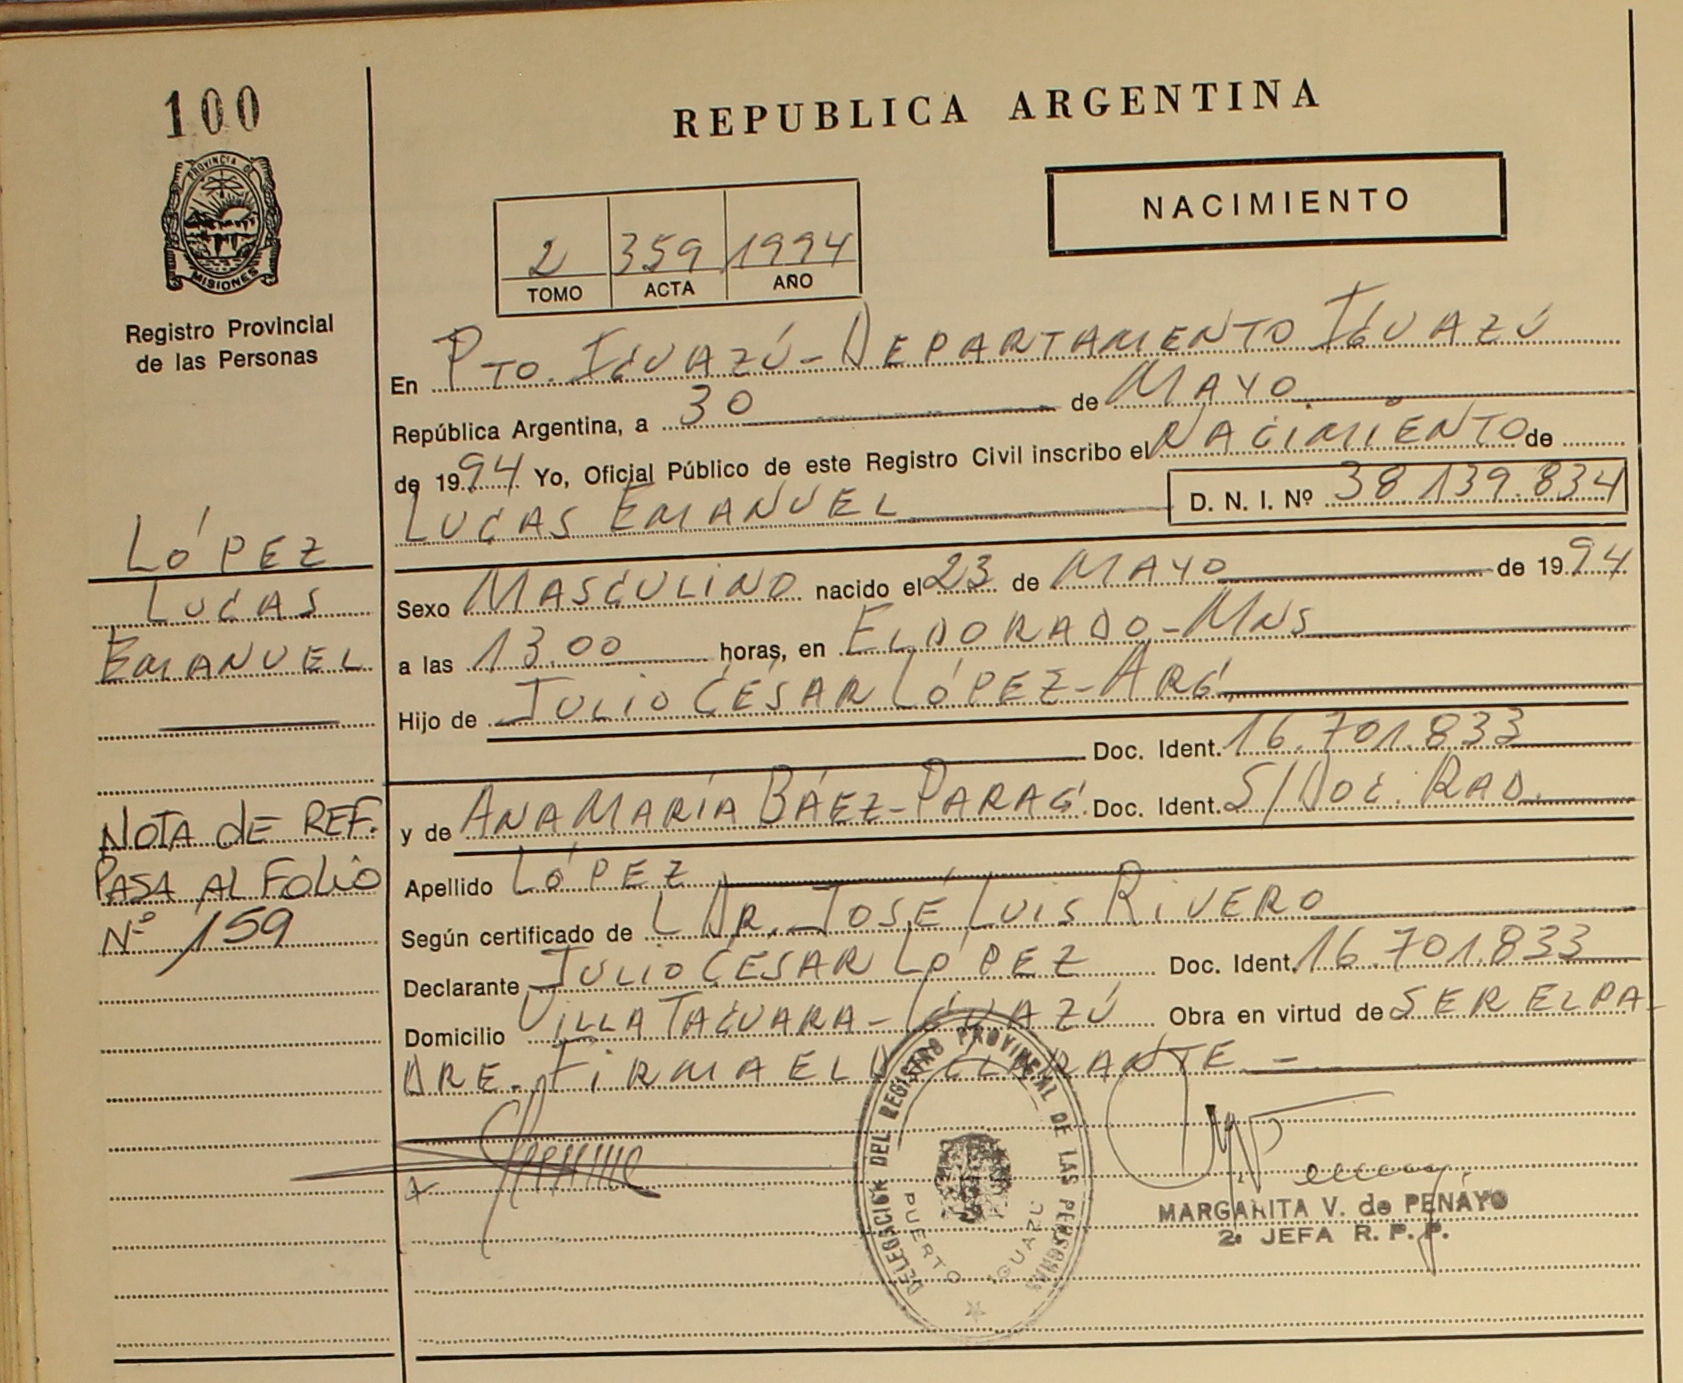 100
REPUBLICA ARGENTINA
PROVINCIA DE
MISIONES
Registro Provincial
de las Personas
NACIMIENTO
2 359 1994
TOMO ACTA AÑO
En PTO. IGUAZÚ - DEPARTAMENTO IGUAZÚ
República Argentina, a 30 de MAYO
de 1994 Yo, Oficial Público de este Registro Civil inscribo el NACIMIENTO de
LUCAS EMANUEL D. N. I. Nº 38.139.834
LÓPEZ
LUCAS
EMANUEL
Sexo MASCULINO nacido el 23 de MAYO de 1994
a las 13.00 horas, en ELDORADO - MNS
Hijo de JULIO CÉSAR LÓPEZ - ARG.
Doc. Ident. 16.701.833
y de ANA MARÍA BÁEZ - PARAG. Doc. Ident. S/DOC. RAD.
NOTA de REF.
PASA AL FOLIO
Nº 159
Apellido LÓPEZ
Según certificado de L DR. JOSÉ LUIS RIVERO
Declarante JULIO CÉSAR LÓPEZ Doc. Ident. 16.701.833
Domicilio VILLA TACUARA - IGUAZÚ Obra en virtud de SER EL PA-
DRE. FIRMA EL DECLARANTE. -
DELEGACION DEL REGISTRO PROVINCIAL DE LAS PERSONAS
PUERTO IGUAZU
MARGARITA V. de PENAYO
2a JEFA R. P. P.